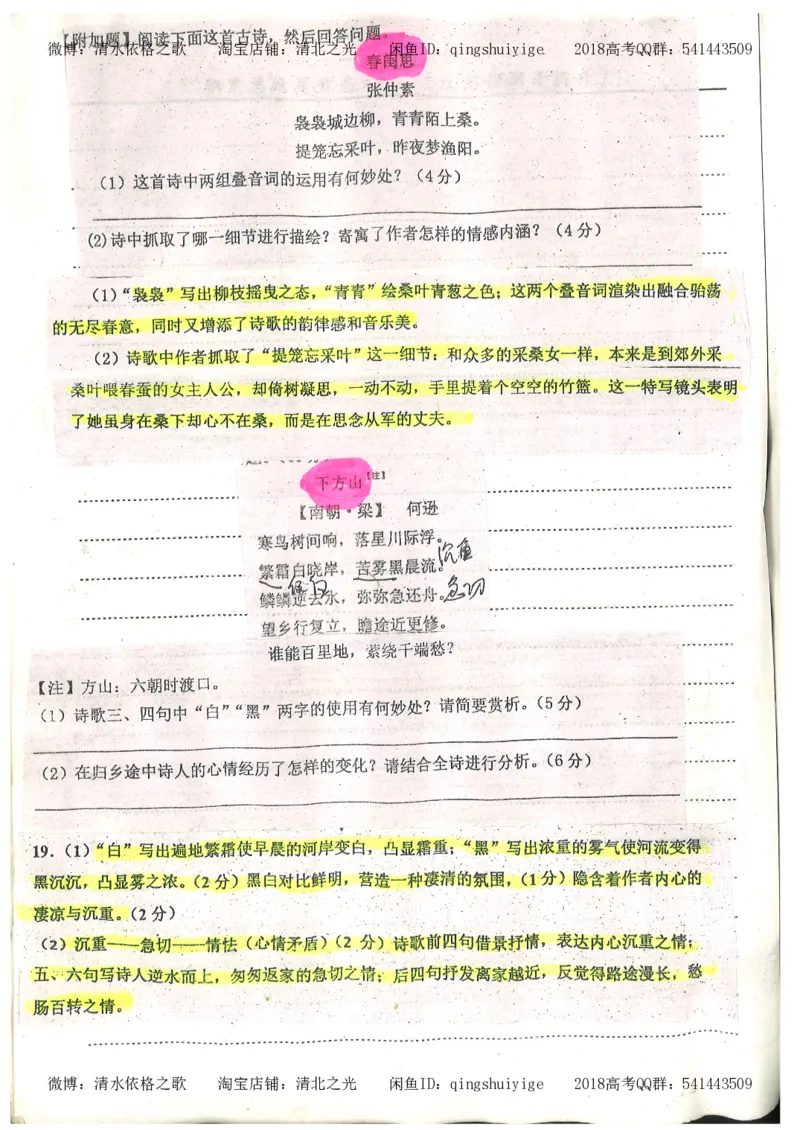 【附加题】阅读下面这首古诗，然后回答问题。
微博：清水依格之歌 淘宝店铺：清北之光 闲鱼ID：qingshuiyige 2018高考QQ群：541443509
春闺思
张仲素
袅袅城边柳，青青陌上桑。
提笼忘采叶，昨夜梦渔阳。
（1）这首诗中两组叠音词的运用有何妙处？（4分）
(2)诗中抓取了哪一细节进行描绘？寄寓了作者怎样的情感内涵？（4分）
（1）“袅袅”写出柳枝摇曳之态，“青青”绘桑叶青葱之色；这两个叠音词渲染出融合骀荡
的无尽春意，同时又增添了诗歌的韵律感和音乐美。
（2）诗歌中作者抓取了“提笼忘采叶”这一细节：和众多的采桑女一样，本来是到郊外采
桑叶喂春蚕的女主人公，却倚树凝思，一动不动，手里提着个空空的竹篮。这一特写镜头表明
了她虽身在桑下却心不在桑，而是在思念从军的丈夫。
下方山【注】
【南朝·梁】 何逊
寒鸟树间响，落星川际浮。
沉重
繁霜白晓岸，苦雾黑晨流。
鳞鳞逆去水，弥弥急还舟。急切
望乡行复立，瞻途近更修。
谁能百里地，萦绕千端愁？
【注】方山：六朝时渡口。
（1）诗歌三、四句中“白”“黑”两字的使用有何妙处？请简要赏析。（5分）
（2）在归乡途中诗人的心情经历了怎样的变化？请结合全诗进行分析。（6分）
19.（1）“白”写出遍地繁霜使早晨的河岸变白，凸显霜重；“黑”写出浓重的雾气使河流变得
黑沉沉，凸显雾之浓。（2分）黑白对比鲜明，营造一种凄清的氛围，（1分）隐含着作者内心的
凄凉与沉重。（2分）
（2）沉重——急切——情怯（心情矛盾）（2分）诗歌前四句借景抒情，表达内心沉重之情；
五、六句写诗人逆水而上，匆匆返家的急切之情；后四句抒发离家越近，反觉得路途漫长，愁
肠百转之情。
微博：清水依格之歌 淘宝店铺：清北之光 闲鱼ID：qingshuiyige 2018高考QQ群：541443509